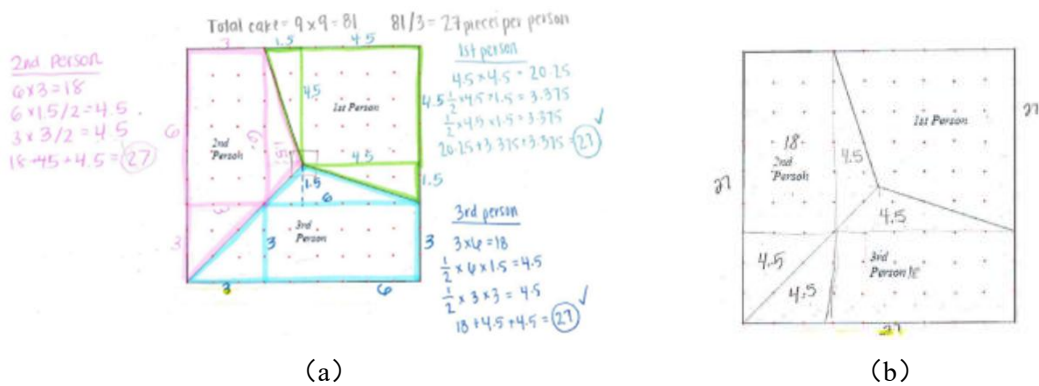 Total cake = 9 x 9 = 81 81/3 = 27 pieces per person
2nd Person
6x3=18
6x1.5/2=4.5
3x3/2=4.5
18+4.5+4.5=27
3
1.5
4.5
4.5
4.5
1st Person
6
6
2nd
Person
1.5
4.5
1.5
1.5
3
6
3
3
3rd
Person
3
3
6
1st Person
4.5x4.5=20.25
1/2x4.5x1.5=3.375
1/2x4.5x1.5=3.375
20.25+3.375+3.375=27
3rd person
3x6=18
1/2x6x1.5=4.5
1/2x3x3=4.5
18+4.5+4.5=27
(a)
1st Person
27
18
2nd
Person
4.5
27
4.5
4.5
4.5
3rd
Person 18
27
(b)